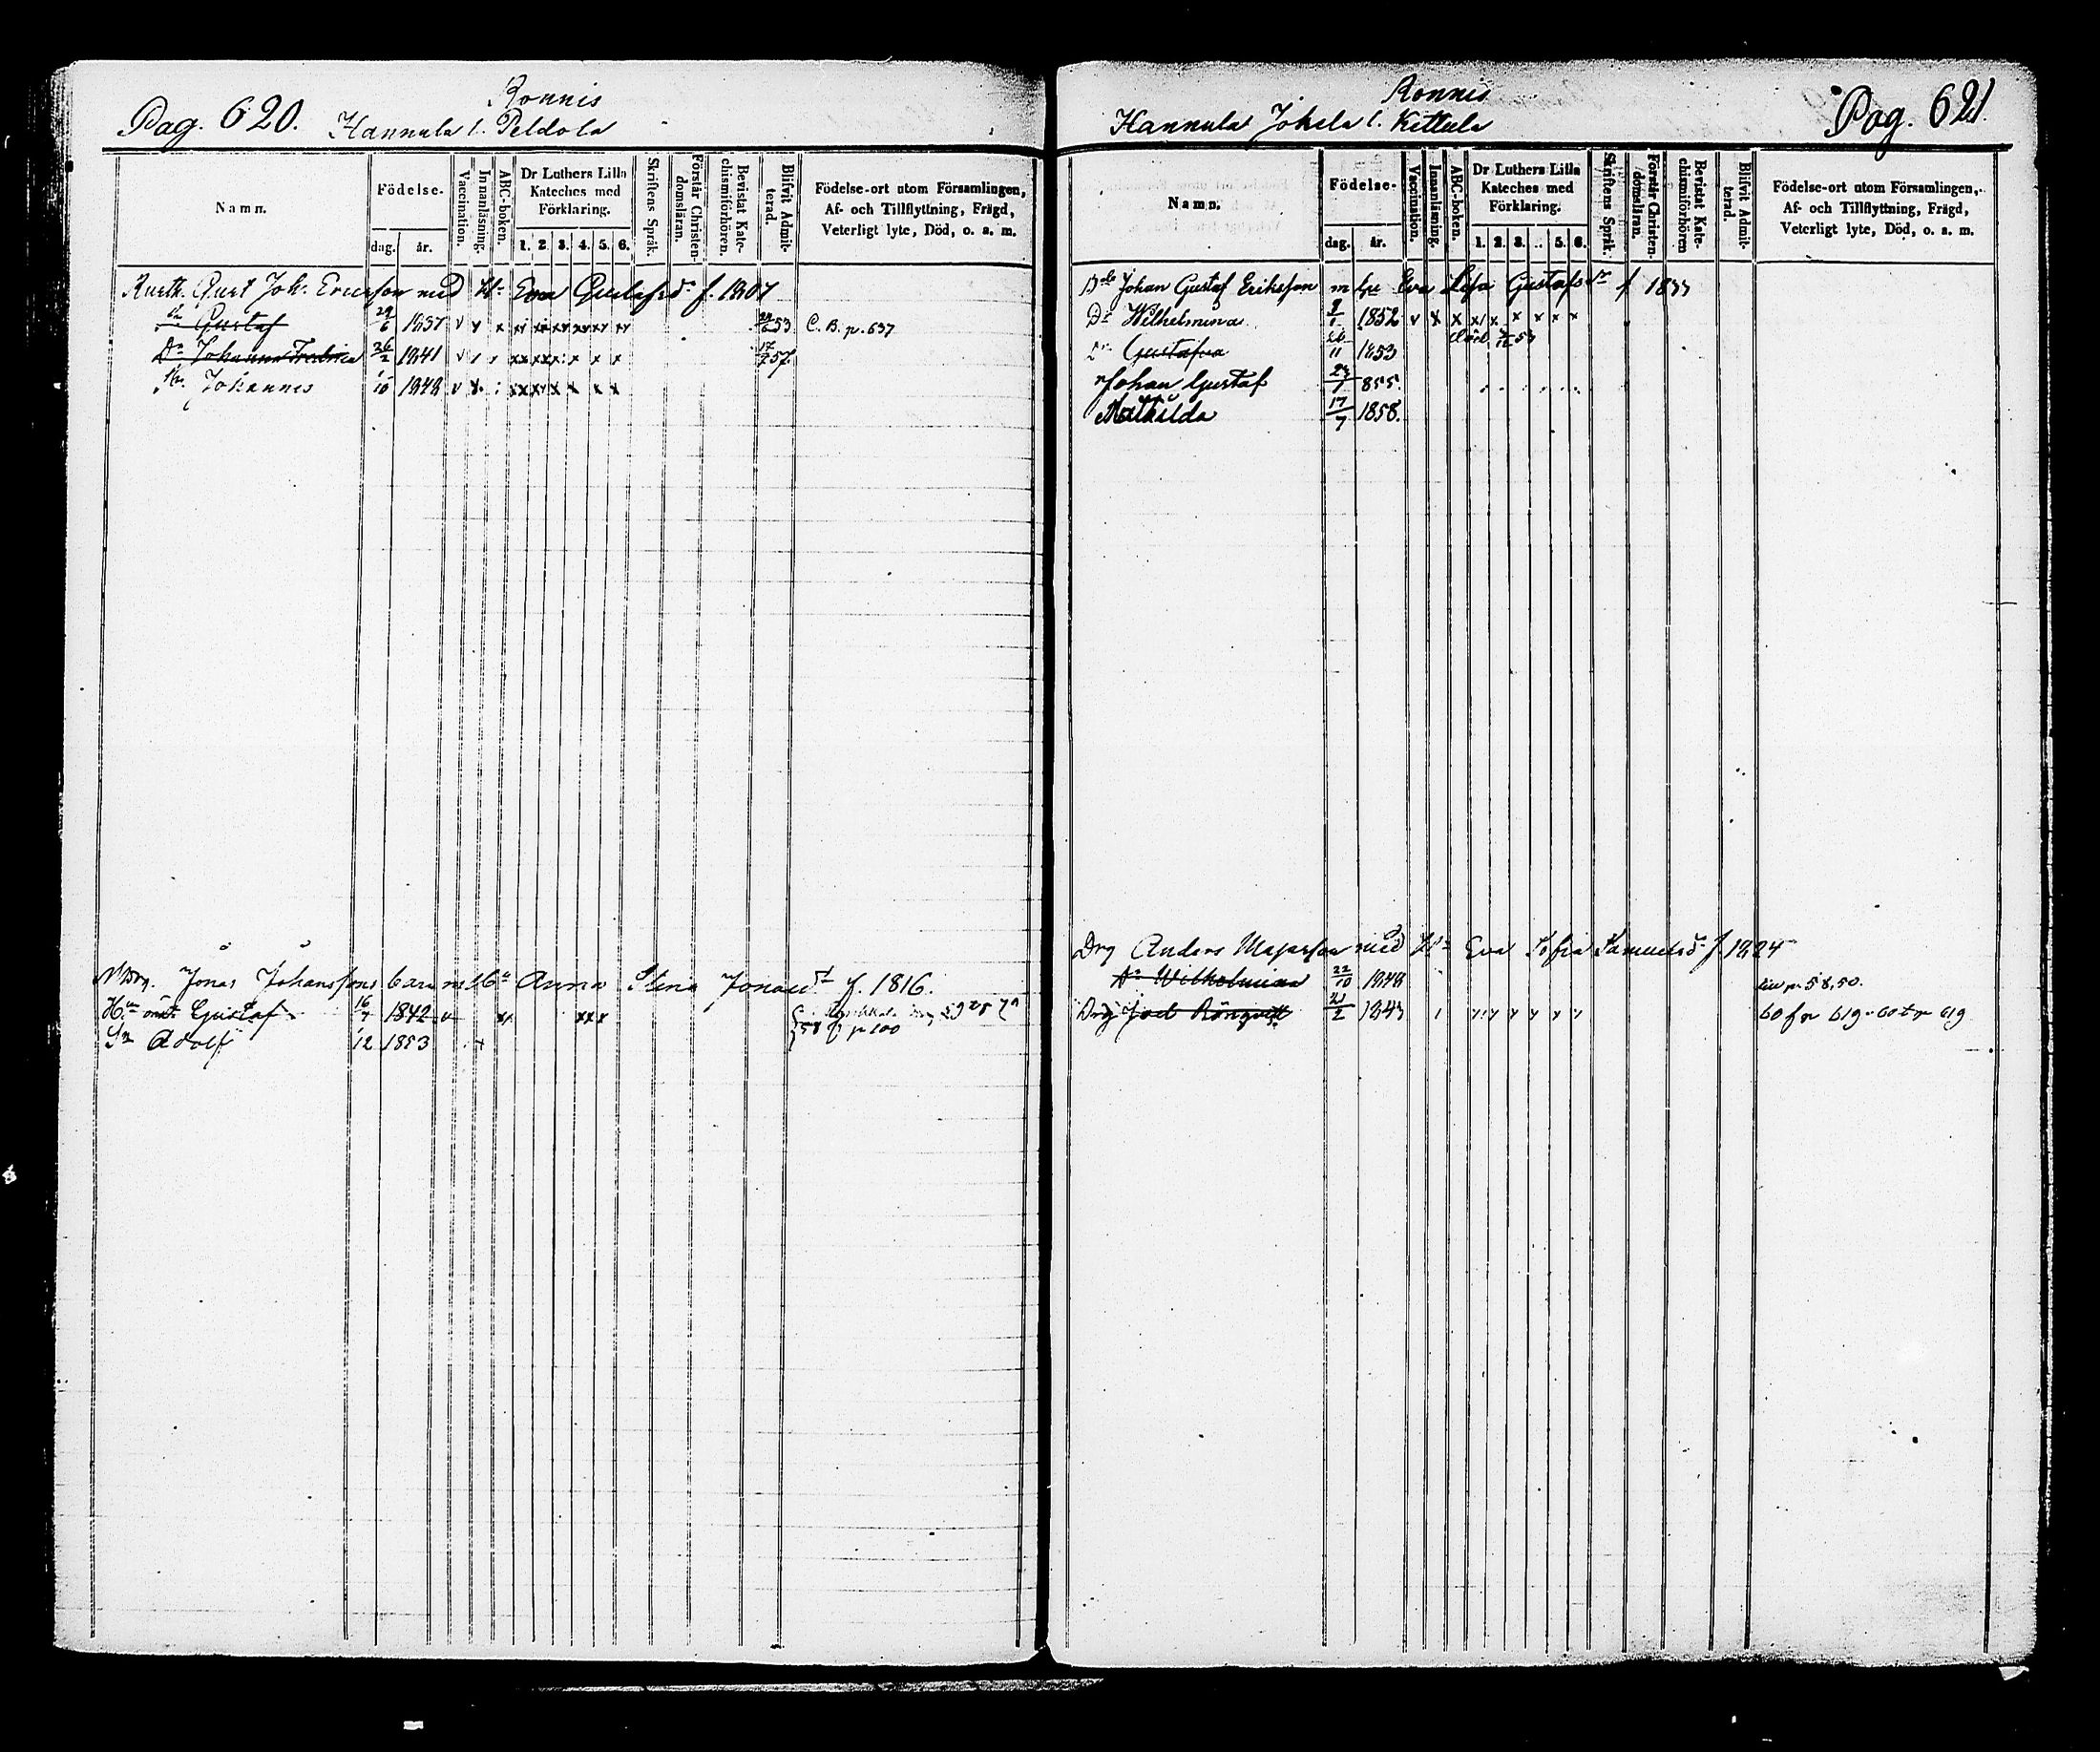 Ronnis
Pag. 620. Hannula l. Peldola
Namn.
Födelse-
dag. år.
Vaccination.
Innanläsning.
ABC-boken.
Dr Luthers Lilla Kateches med Förklaring.
1. 2. 3. 4. 5. 6.
Skriftens Språk.
Förstår Christendomsläran.
Bevistat Katechismiförhören.
Blifvit Admitterad.
Födelse-ort utom Församlingen,
Af- och Tillflyttning, Frägd,
Veterligt lyte, Död, o. a. m.
Gust Joh. Ericsson med H: Eva Gustafsd: f. 1807
Gustaf 29/6 1837 C. B. p. 637
Dr Johanna Fredrica 26/2 1841 17/7 57
Johannes /10 1848
Jonas Johanssons barn med Anna Stina Jonaed f. 1816.
Gustaf 16/7 1842
58 p 100
Sn Adolf /12 1853
Ronnis
Hannula Jokela l. Kettula Pag. 621.
Namn.
Födelse-
dag. år.
Vaccination.
Innanläsning.
ABC-boken.
Dr Luthers Lilla Kateches med Förklaring.
1. 2. 3. .. 5. 6.
Skriftens Språk.
Förstår Christendomsläran.
Bevistat Katechismiförhören
Blifvit Admitterad.
Födelse-ort utom Församlingen,
Af- och Tillflyttning, Frägd,
Veterligt lyte, Död, o. a. m.
Johan Gustaf Eriksson m hu Eva Lisa Gustafsdr f
Dr Wilhelmina 1852
Dr Gustafva /11 1853
Johan Gustaf 855
Mathilda 17/7 1858.
Drg Anders Majasson med H: Eva Sofia Samuelsd: f 1824
Dr Wilhelmina 22/10 1848 58, 50.
Drg Joel Rönqvist 21/2 1843 60 fr 619 60 tr 619